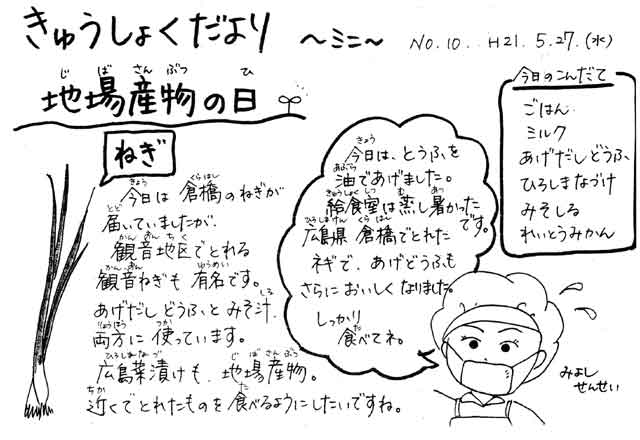 きゅうしょくだより ～ミニ～ No.10. H21.5.27.(水)
地場産物の日
ねぎ
今日は 倉橋のねぎが
届いていましたが、
観音地区でとれる
観音ねぎも 有名です。
あげだし どうふと みそ汁
両方に 使っています。
広島菜漬けも、地場産物。
近くでとれたものを 食べるようにしたいですね。
今日は、とうふを
油であげました。
給食室は蒸し暑かった
です。
広島県 倉橋でとれた
ネギで、あげどうふも
さらにおいしくなりました。
しっかり
食べてネ。
今日のこんだて
ごはん
ミルク
あげだし どうふ
ひろしまなづけ
みそしる
れいとうみかん
みよし
せんせい